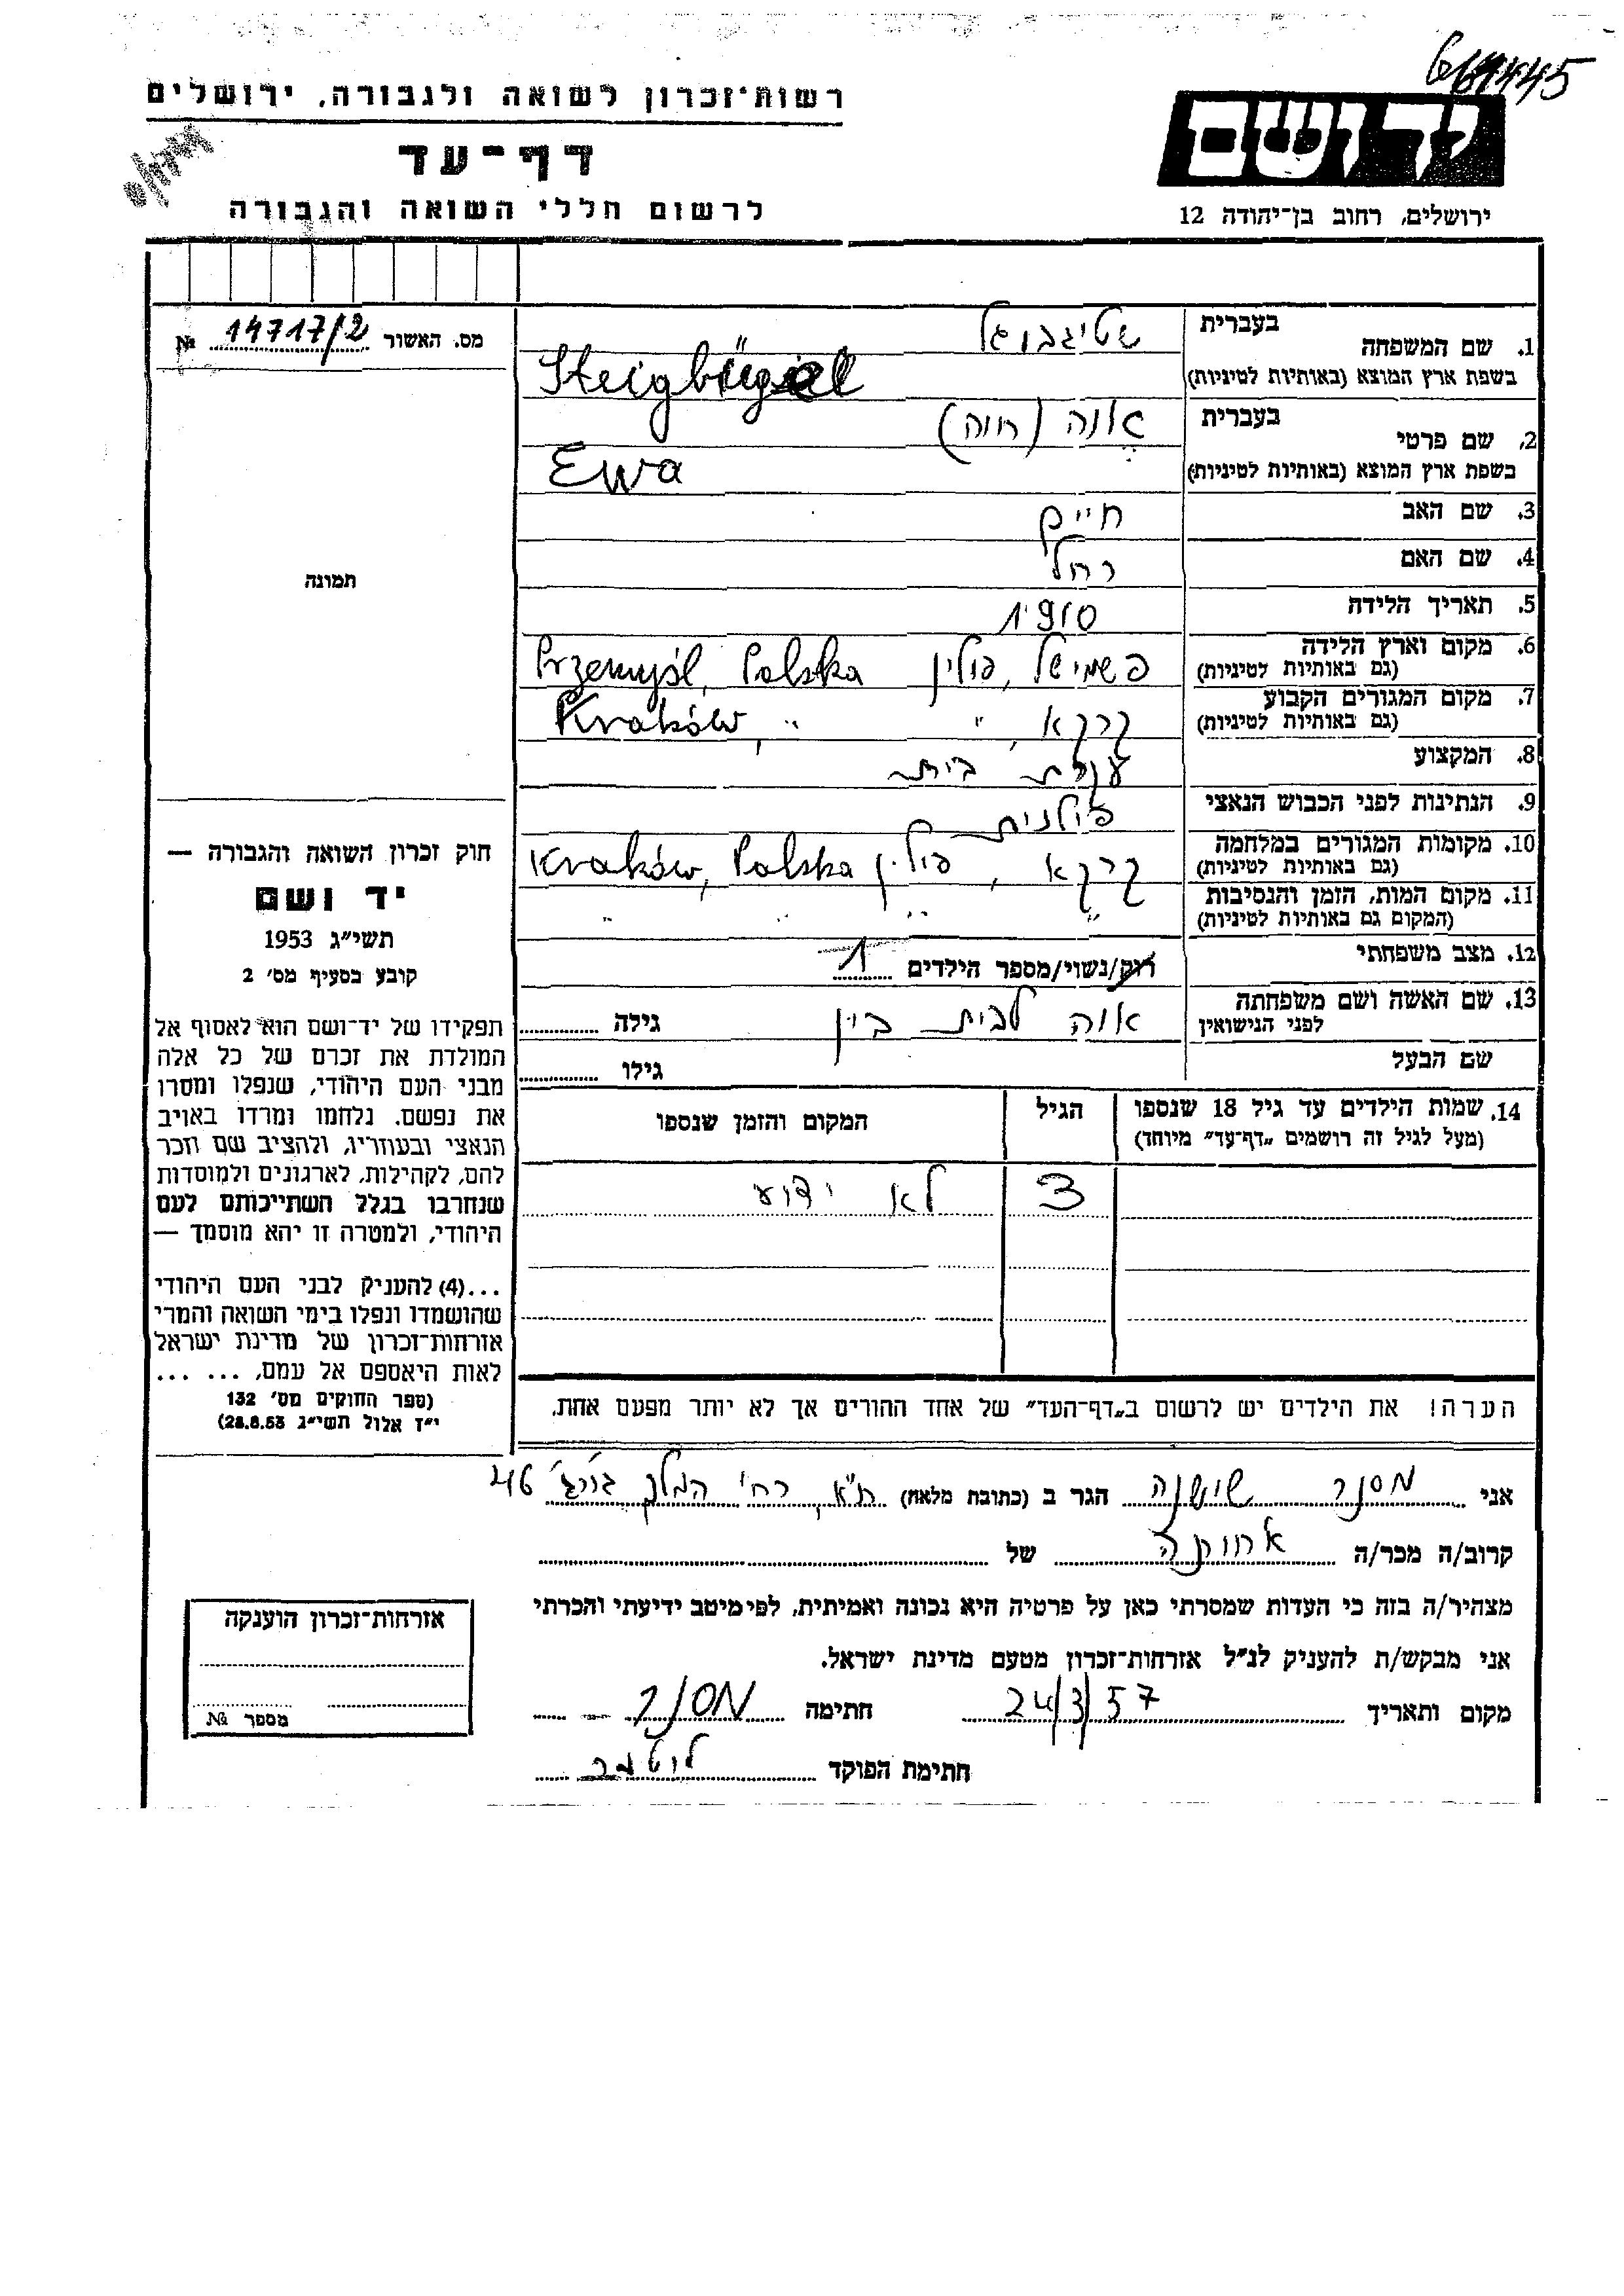 רשות־זכרון לשואה ולגבורה, ירושלים
דף־עד
לרשום חללי השואה והגבורה
יד ושם
ירושלים, רחוב בן־יהודה 12
מס. האשור 14717/2 №
תמונה
חוק זכרון השואה והגבורה —
יד ושם
תשי״ג 1953
קובע בסעיף מס׳ 2
תפקידו של יד־ושם הוא לאסוף אל
המולדת את זכרם של כל אלה
מבני העם היהודי, שנפלו ומסרו
את נפשם, נלחמו ומרדו באויב
הנאצי ובעוזריו, ולהציב שם וזכר
להם, לקהילות, לארגונים ולמוסדות
שנחרבו בגלל השתייכותם לעם
היהודי, ולמטרה זו יהא מוסמך —
...(4) להעניק לבני העם היהודי
שהושמדו ונפלו בימי השואה והמרי
אזרחות־זכרון של מדינת ישראל
לאות היאספם אל עמם, ... ...
(ספר החוקים מס׳ 132
י״ד אלול תשי״ג 28.8.53)
בעברית שטיגבוגל
1. שם המשפחה
בשפת ארץ המוצא (באותיות לטיניות) Steigbügel
בעברית אוה (חוה)
2. שם פרטי
בשפת ארץ המוצא (באותיות לטיניות) Ewa
3. שם האב חיים
4. שם האם רחל
5. תאריך הלידה 1910
6. מקום וארץ הלידה פשמישל, פולין Przemyśl, Polska
(גם באותיות לטיניות)
7. מקום המגורים הקבוע קרקא, " Kraków, "
(גם באותיות לטיניות)
8. המקצוע עקרת בית
9. הנתינות לפני הכבוש הנאצי פולנית
10. מקומות המגורים במלחמה קרקא, פולין Kraków, Polska
(גם באותיות לטיניות)
11. מקום המות, הזמן והנסיבות " " " "
(המקום גם באותיות לטיניות)
12. מצב משפחתי רוק/נשוי/מספר הילדים 1
13. שם האשה ושם משפחתה אוה לבית בין גילה
לפני הנישואין
שם הבעל גילו
14. שמות הילדים עד גיל 18 שנספו הגיל המקום והזמן שנספו
(מעל לגיל זה רושמים „דף־עד״ מיוחד)
3 לא ידוע
הערה! את הילדים יש לרשום ב„דף־העד״ של אחד ההורים אך לא יותר מפעם אחת.
אני מסנר שושנה הגר ב (כתובת מלאה) ת״א, רח׳ המלך ג׳ורג׳ 46
קרוב/ה מכר/ה אחותה של
מצהיר/ה בזה כי העדות שמסרתי כאן על פרטיה היא נכונה ואמיתית, לפי מיטב ידיעתי והכרתי
אני מבקש/ת להעניק לנ״ל אזרחות־זכרון מטעם מדינת ישראל.
מקום ותאריך 24/3/57 חתימה מסנר
חתימת הפוקד
אזרחות־זכרון הוענקה
מספר №